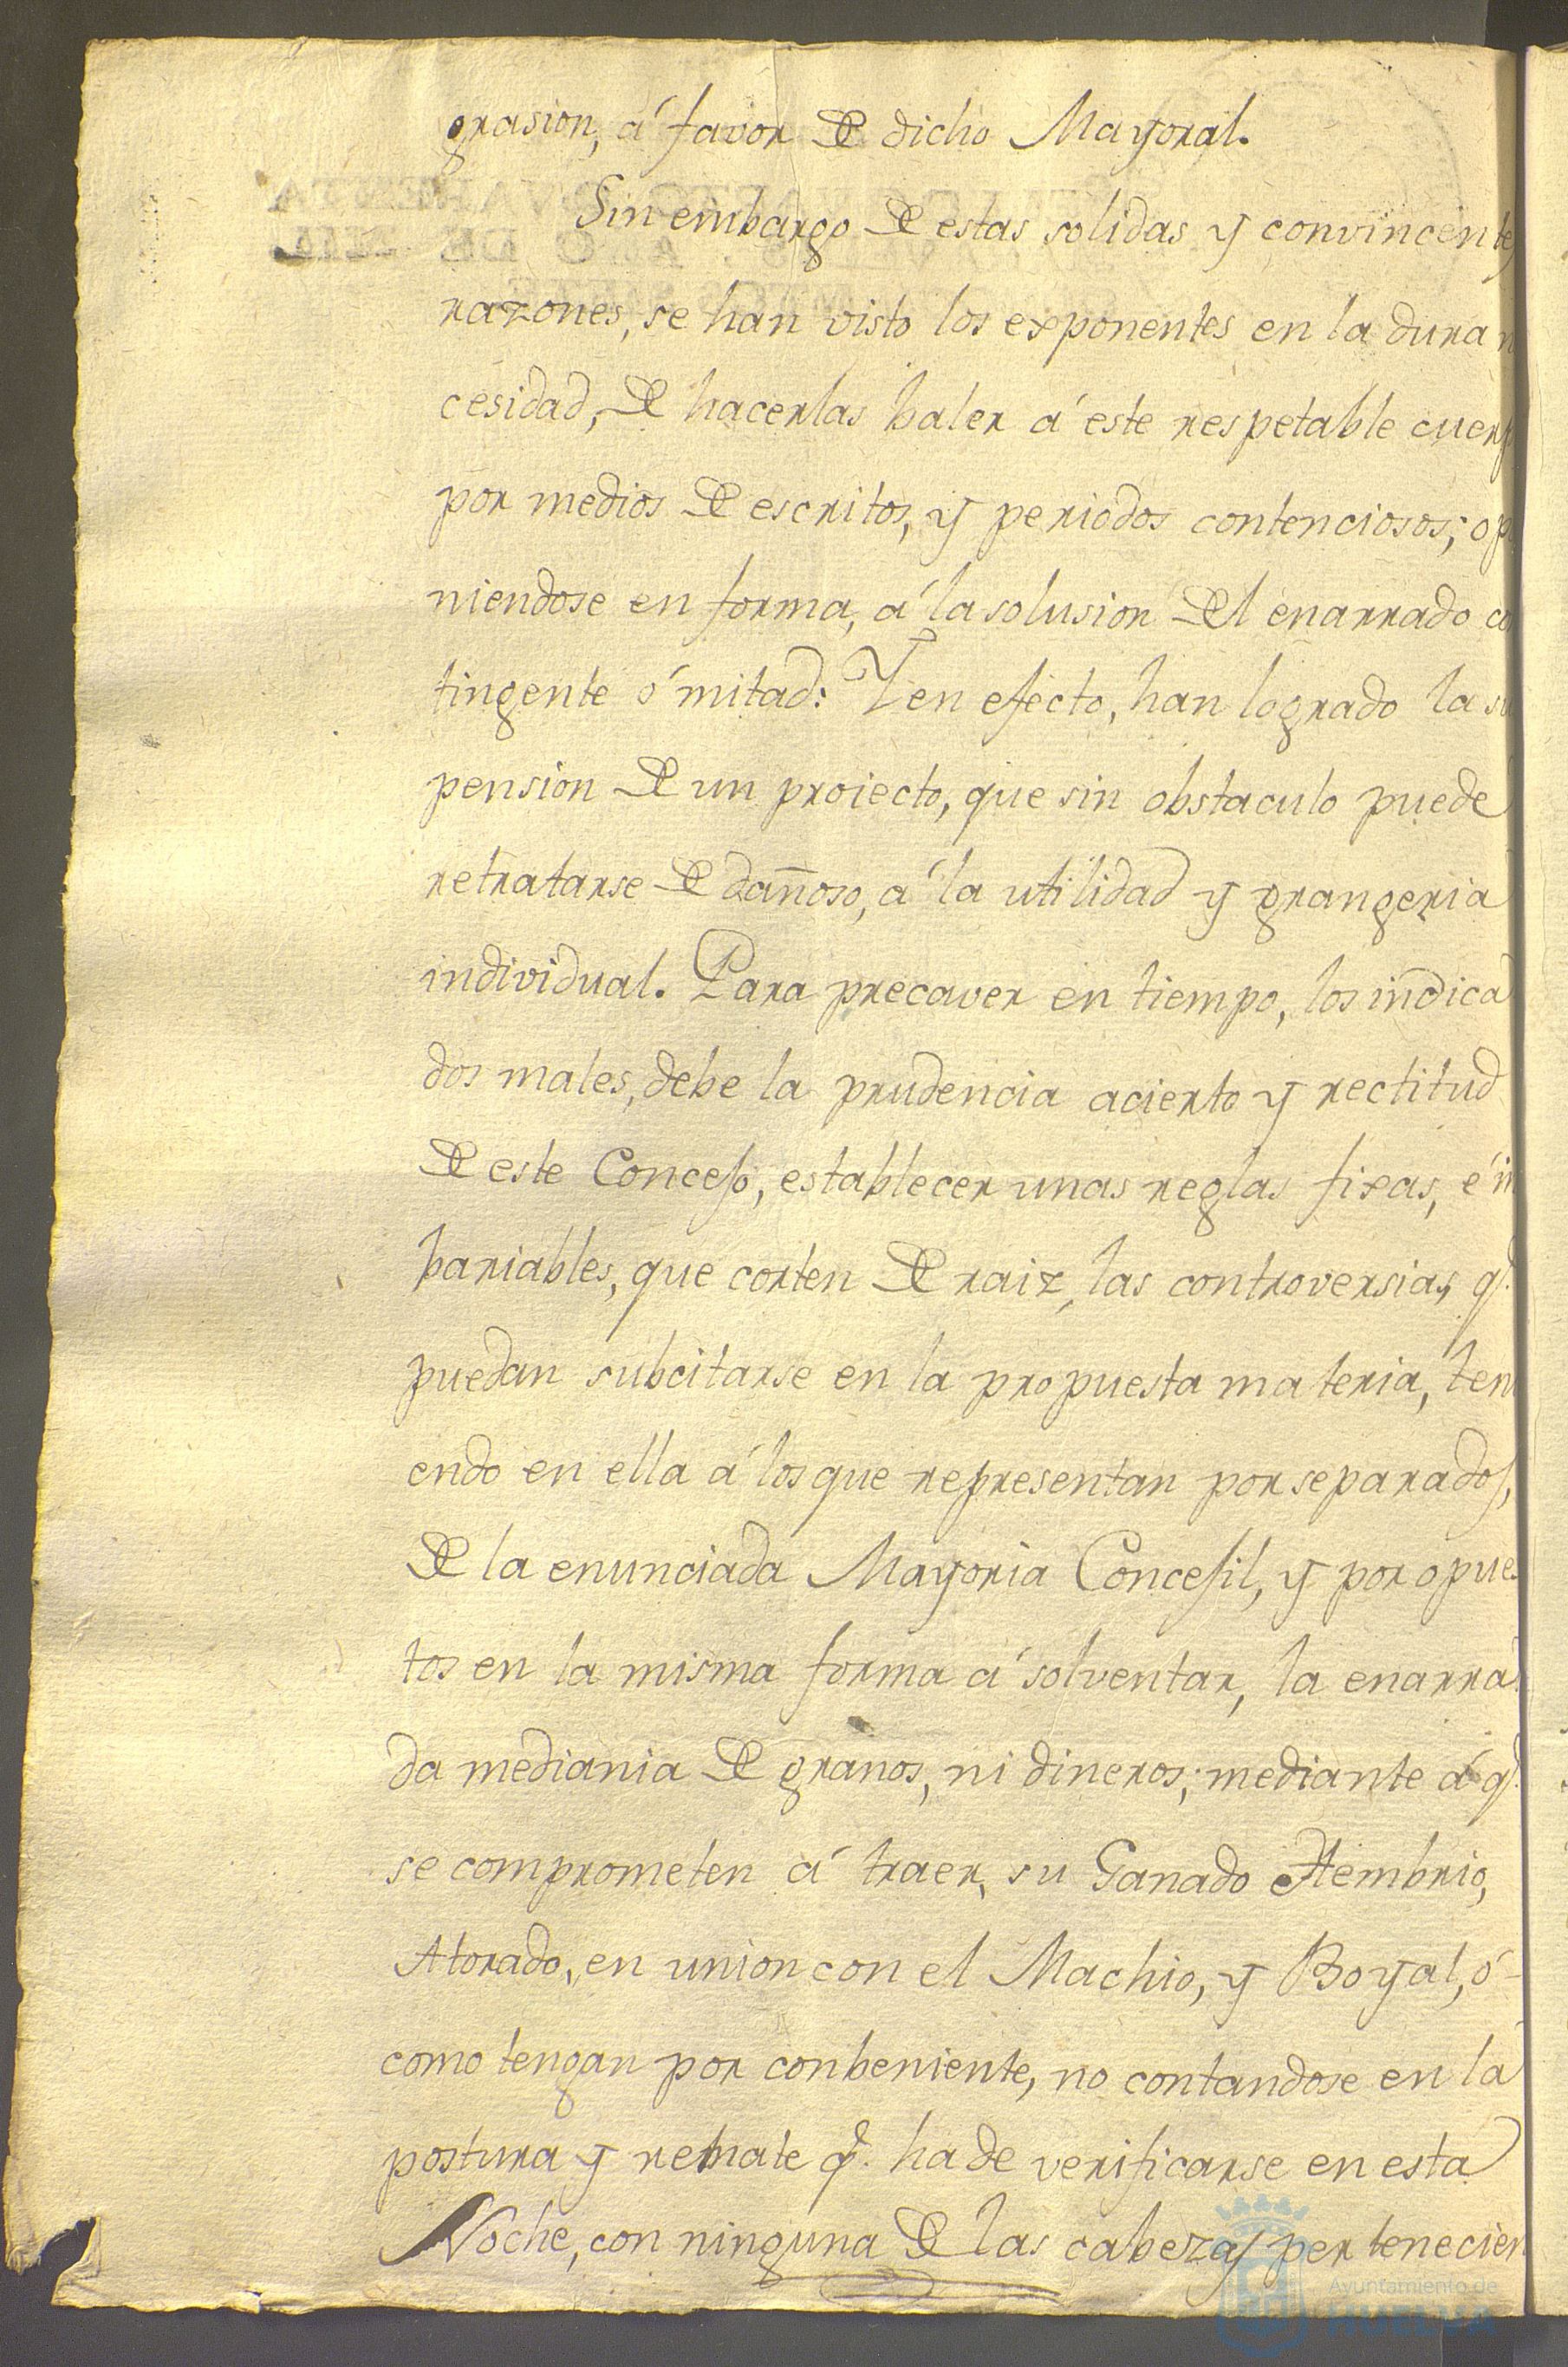 grasion, á favor de dicho Mayoral.
Sin embargo de estas solidas y convincentes
razones, se han visto los exponentes en la dura n
cesidad, de hacerlas baler á este respetable cuerp
por medios de escritos, y periodos contenciosos; op
niendose en forma, á la solusion del enarrado co
tingente ó mitad: Y en efecto, han logrado la su
pension de un proiecto, que sin obstaculo puede
retratarse de dañoso, á la utilidad y grangeria
individual. Para precaver en tiempo, los indica
dos males, debe la prudencia acierto y rectitud
de este Concejo, establecer unas reglas fixas, é in
bariables, que corten de raiz, las controversias, q.^e
puedan subcitarse en la propuesta materia, teni
endo en ella á los que representan por separados,
de la enunciada Mayoria Concejil, y por opues
tos en la misma forma á solventar, la enarra
da mediania de granos, ni dineros; mediante á q.^e
se comprometen á traer, su Ganado Hembrio,
Atorado, en union con el Machio, y Boyal, ó
como tengan por conbeniente, no contandose en la
postura y remate q.^e ha de verificarse en esta
Noche, con ninguna de las cabezas pertenecien
Ayuntamiento de
HUELVA